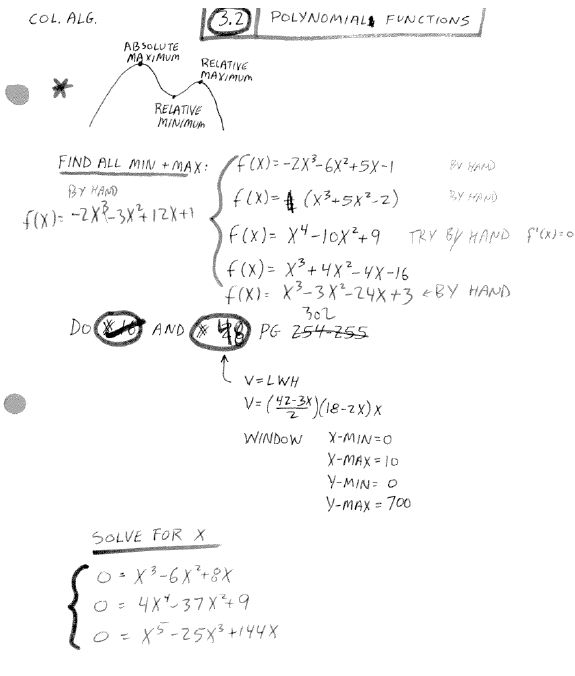 COL. ALG. 3.2 POLYNOMIAL FUNCTIONS
ABSOLUTE MAXIMUM
RELATIVE MAXIMUM
RELATIVE MINIMUM
FIND ALL MIN + MAX:
BY HAND
f(x)= -2x³-3x²+12x+1
f(x)= -2x³-6x²+5x-1 BY HAND
f(x)= (x³+5x²-2) BY HAND
f(x)= x⁴-10x²+9 TRY BY HAND f'(x)=0
f(x)= x³+4x²-4x-16
f(x)= x³-3x²-24x+3 ← BY HAND
302
DO AND PG 254-255
V=LWH
V=((42-3x)/2)(18-2x)x
WINDOW X-MIN=0
X-MAX=10
Y-MIN=0
Y-MAX=700
SOLVE FOR X
0 = x³-6x²+8x
0 = 4x⁴-37x²+9
0 = x⁵-25x³+144x